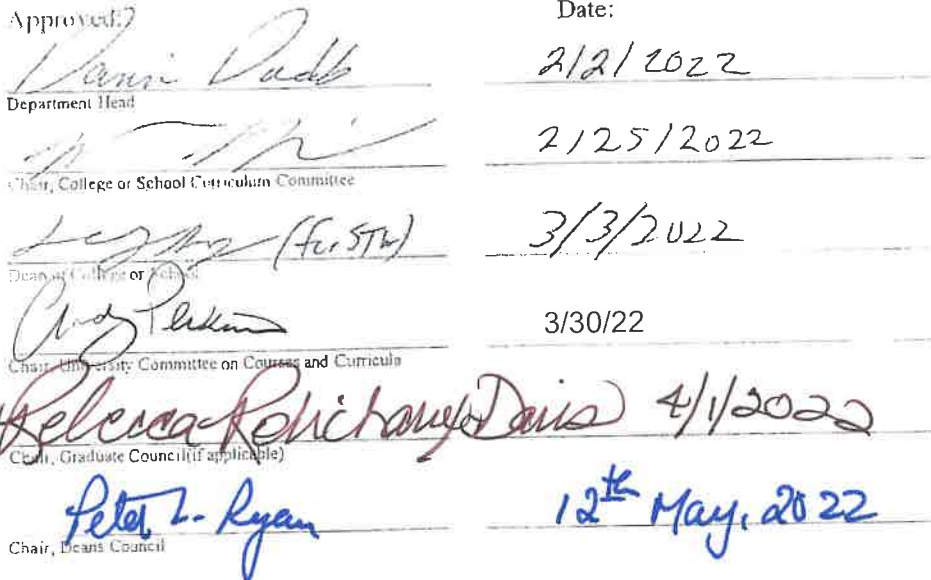 Approved: Date:
2/2/2022
Department Head
2/25/2022
Chair, College or School Curriculum Committee
(for STW) 3/3/2022
Dean of College or School
Andy Perkins 3/30/22
Chair, University Committee on Courses and Curricula
Rebecca Robichaux-Davis 4/1/2022
Chair, Graduate Council (if applicable)
Peter L. Ryan 12th May, 2022
Chair, Deans Council